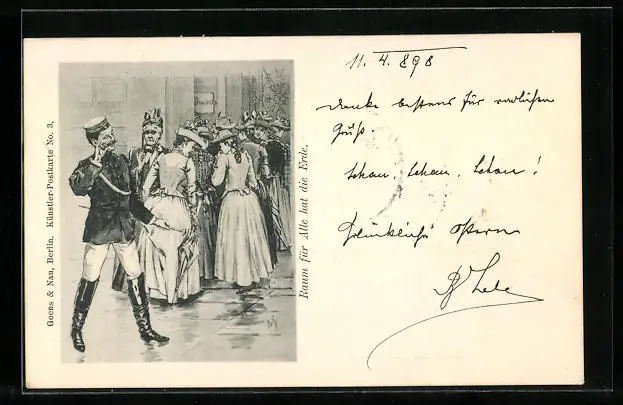 Goens & Nau, Berlin. Künstler-Postkarte No. 3.
Raum für Alle hat die Erde.
11. 4. 898
Danke bestens für radlichen
Gruß.
Schau, Schau, Schau!
Glückliche Ostern